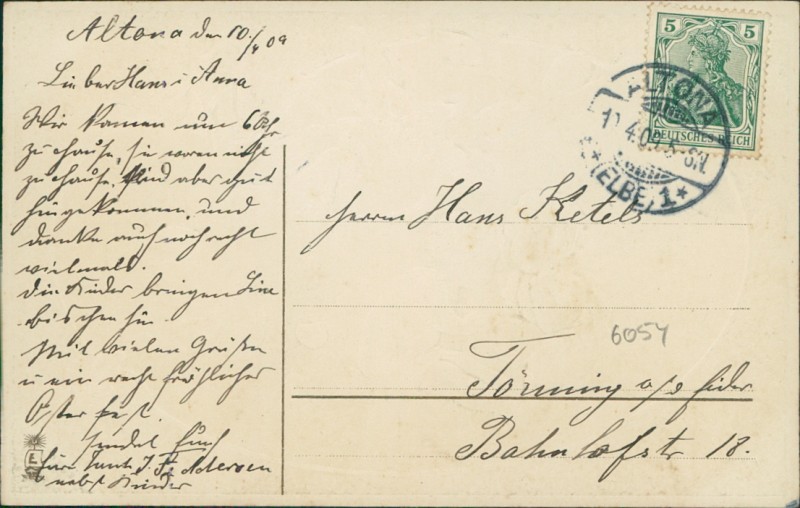 Altona den 10/4 09
Lieber Hans u Anna
Wir kamen um 6 Uhr
zu Hause, sie waren nicht
zu Hause. Sind aber gut
hingekommen, und
danke auch noch recht
vielmals.
Die Kinder bringen
bischen hin
Mit vielen Grüßen
u ein recht fröhliches
Osterfest.
sendet Euch
Eure Tante J. F.
nebst Kinder
5 5
DEUTSCHES REICH
ALTONA
4.09 5-6N.
*(ELBE) 1*
Herrn Hans Ketels
6054
Tönning a/d Eider
Bahnhofstr 18.